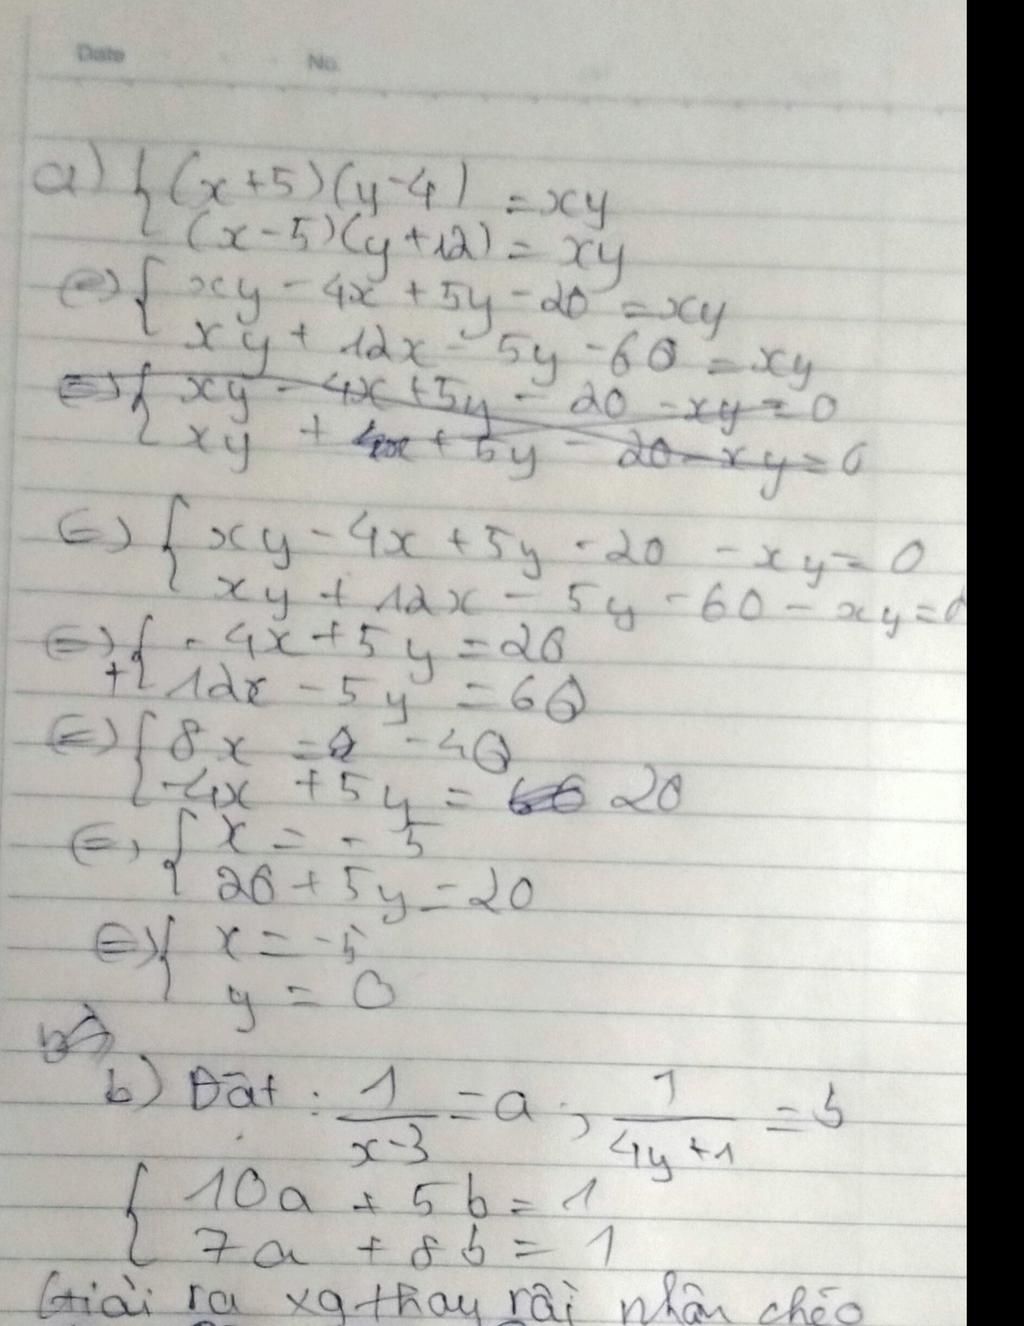 Date No.
a) { (x+5)(y-4) = xy
(x-5)(y+12) = xy
(=) { xy - 4x + 5y - 20 = xy
xy + 12x - 5y - 60 = xy
(=) { xy - 4x + 5y - 20 - xy = 0
xy + + 5y - 20 - xy = 0
(=) { xy - 4x + 5y - 20 - xy = 0
xy + 12x - 5y - 60 - xy = 0
(=) { - 4x + 5y = 20
+ 12x - 5y = 60
(=) { 8x = - 40
-4x + 5y = 20
(=) { x = - 5
20 + 5y = 20
(=) { x = -5
y = 0
b) Đặt : 1/(x-3) = a ; 1/(4y+1) = b
{ 10a + 5b = 1
7a + 8b = 1
Giải ra xg thay rồi nhân chéo